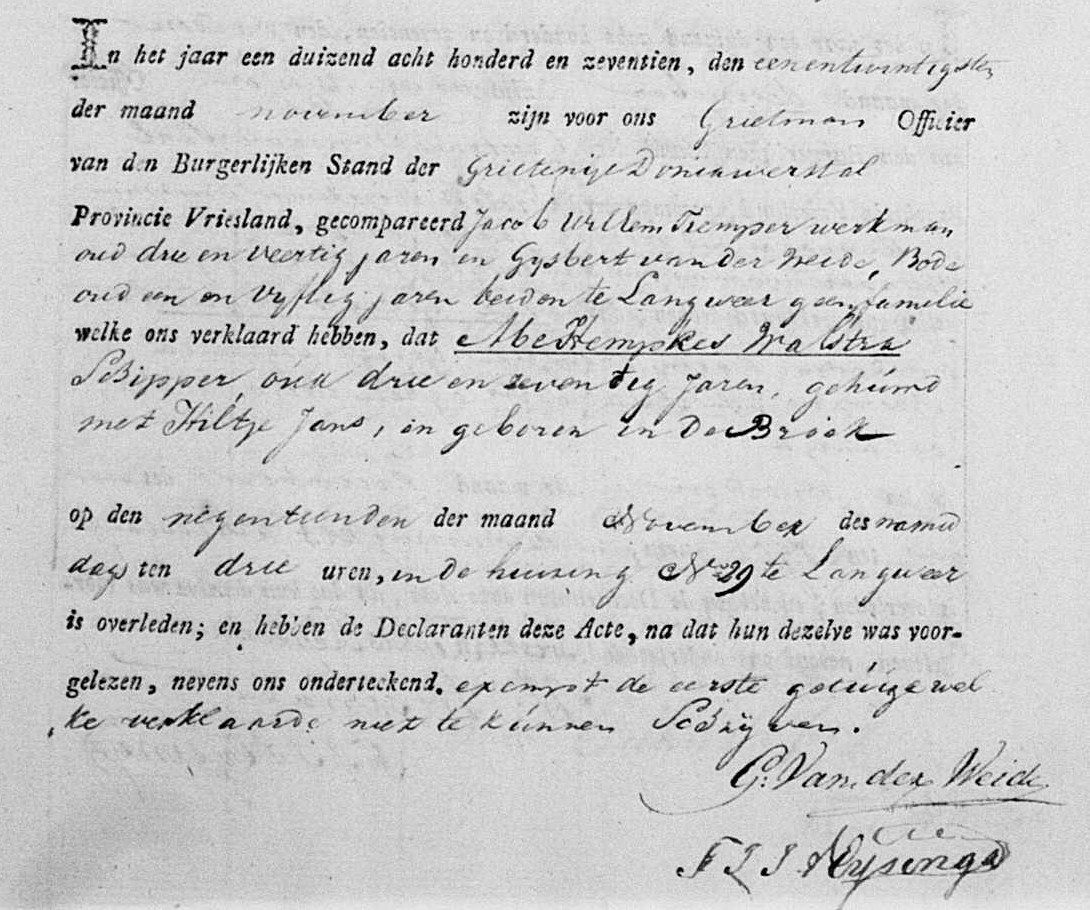 In het jaar een duizend acht honderd en zeventien, den eenentwintigsten
der maand november zijn voor ons Grietman Officier
van den Burgerlijken Stand der Grietenije Doniawerstal
Provincie Vriesland, gecompareerd Jacob Willem Tremper werkman
oud drie en veertig jaren en Gysbert van der Weide, Bode
oud een en vyftig jaren beiden te Langweer geen familie
welke ons verklaard hebben, dat Abe Hempkes Walstra
Schipper, oud drie en zeventig Jaren, gehuwd
met Hiltje Jans, en geboren in De Broek
op den negentienden der maand November des namid
dags ten drie uren, in de huizing No 29 te Langweer
is overleden; en hebben de Declaranten deze Acte, na dat hun dezelve was voor-
gelezen, nevens ons onderteekend. exempt de eerste getuige wel
ke verklaarde niet te kunnen Schryven.
G: Van der Weide